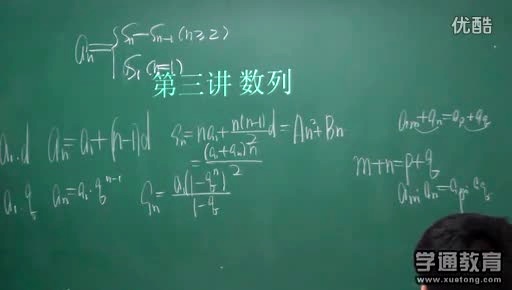 优酷
aₙ = { Sₙ - Sₙ₋₁ (n≥2)
S₁ (n=1)
第三讲 数列
a₁.d aₙ = a₁ + (n-1)d Sₙ = na₁ + n(n-1)/2 d = An² + Bn
= (a₁+aₙ)n/2
a₁.q aₙ = a₁·qⁿ⁻¹ Sₙ = a₁(1-qⁿ)/1-q
aₘ+aₙ=aₚ+a_q
m+n=p+q
aₘ·aₙ=aₚ·a_q
学通教育
www.xuetong.com